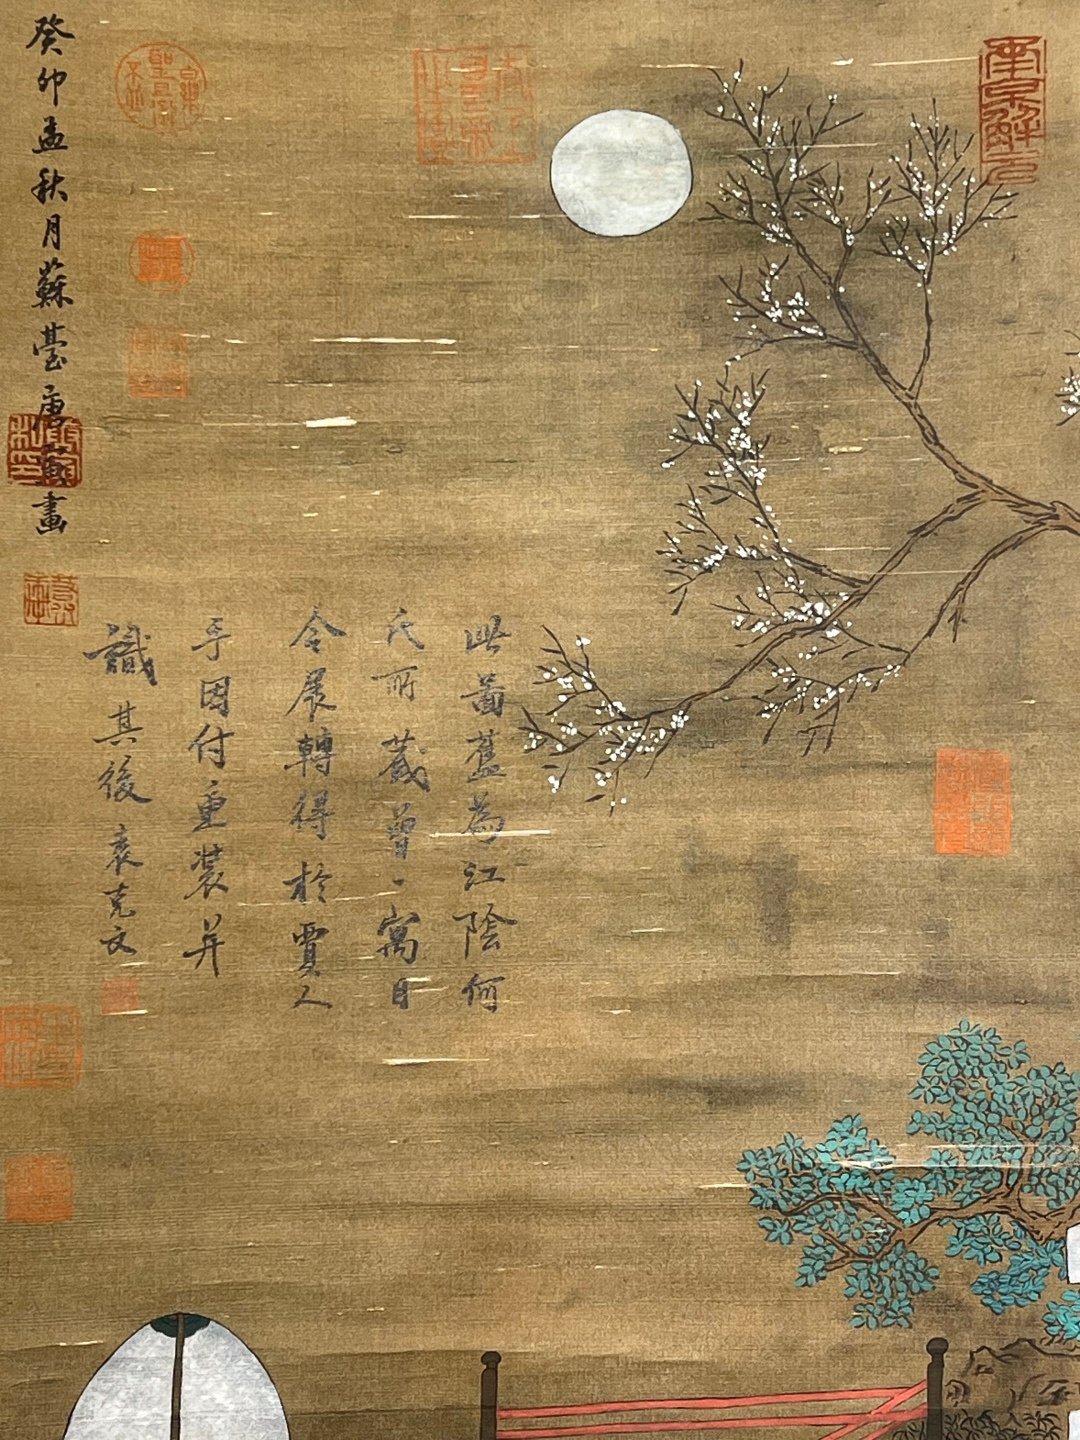 南京解元
此圖舊為江陰何
氏所藏曾一寓目
今展轉得於賈人
手因付重裝并
識其後袁克文
癸卯孟秋月蘇臺唐寅畫